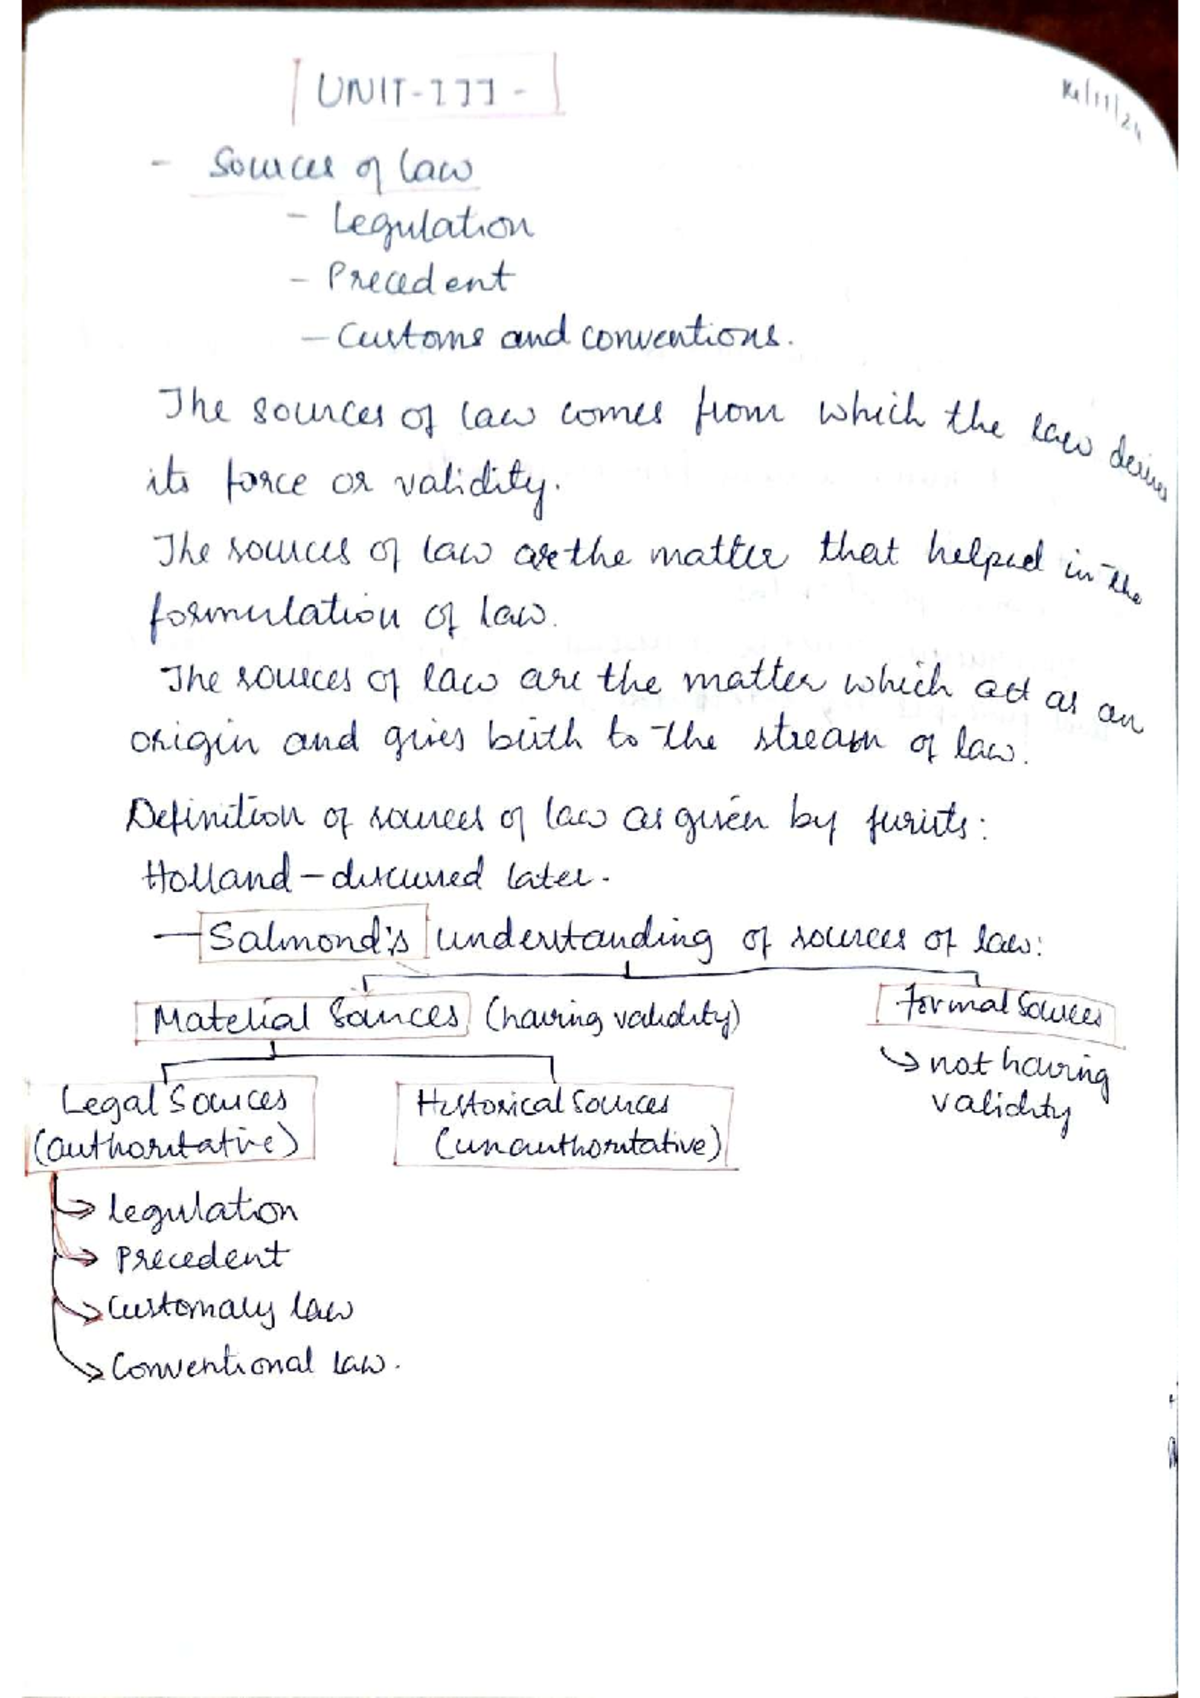 UNIT-III -
14/11/24
- Sources of law
- Legislation
- Precedent
- Customs and conventions.
The sources of law comes from which the law derives
its force or validity.
The sources of law are the matter that helped in the
formulation of law.
The sources of law are the matter which act as an
origin and gives birth to the stream of law.
Definition of sources of law as given by jurists:
Holland - discussed later.
- Salmond's understanding of sources of law:
Material Sources (having validity)
Formal Sources
→ not having
validity
Legal Sources
(authoritative)
Historical Sources
(unauthoritative)
→ legislation
→ Precedent
→ Customary law
→ Conventional law.